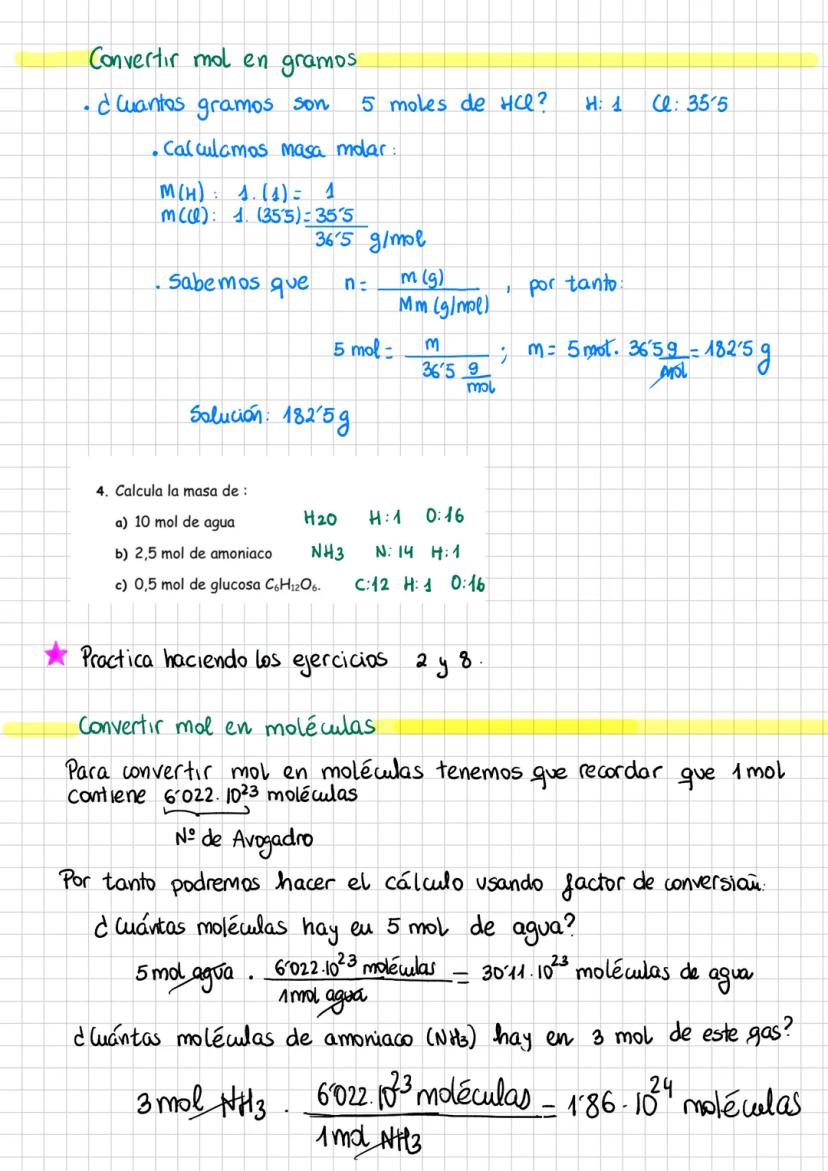 Convertir mol en gramos
• ¿Cuantos gramos son 5 moles de HCl? H: 1 Cl: 35'5
• Calculamos masa molar:
M(H): 1.(1) = 1
m(Cl): 1.(35'5) = 35'5
36'5 g/mol
• Sabemos que n = m(g) / Mm (g/mol) , por tanto:
5 mol = m / 36'5 g/mol ; m = 5 mol. 36'5 g/mol = 182'5 g
Solución: 182'5 g
4. Calcula la masa de :
a) 10 mol de agua H2O H:1 O:16
b) 2,5 mol de amoniaco NH3 N: 14 H:1
c) 0,5 mol de glucosa C₆H₁₂O₆. C:12 H:1 O:16
Practica haciendo los ejercicios 2 y 8.
Convertir mol en moléculas
Para convertir mol en moléculas tenemos que recordar que 1 mol
contiene 6'022.10²³ moléculas
Nº de Avogadro
Por tanto podremos hacer el cálculo usando factor de conversión:
¿Cuántas moléculas hay en 5 mol de agua?
5 mol agua . 6'022.10²³ moléculas / 1 mol agua = 30'11.10²³ moléculas de agua
¿Cuántas moléculas de amoniaco (NH₃) hay en 3 mol de este gas?
3 mol NH3 . 6'022.10²³ moléculas / 1 mol NH3 = 1'86.10²⁴ moléculas